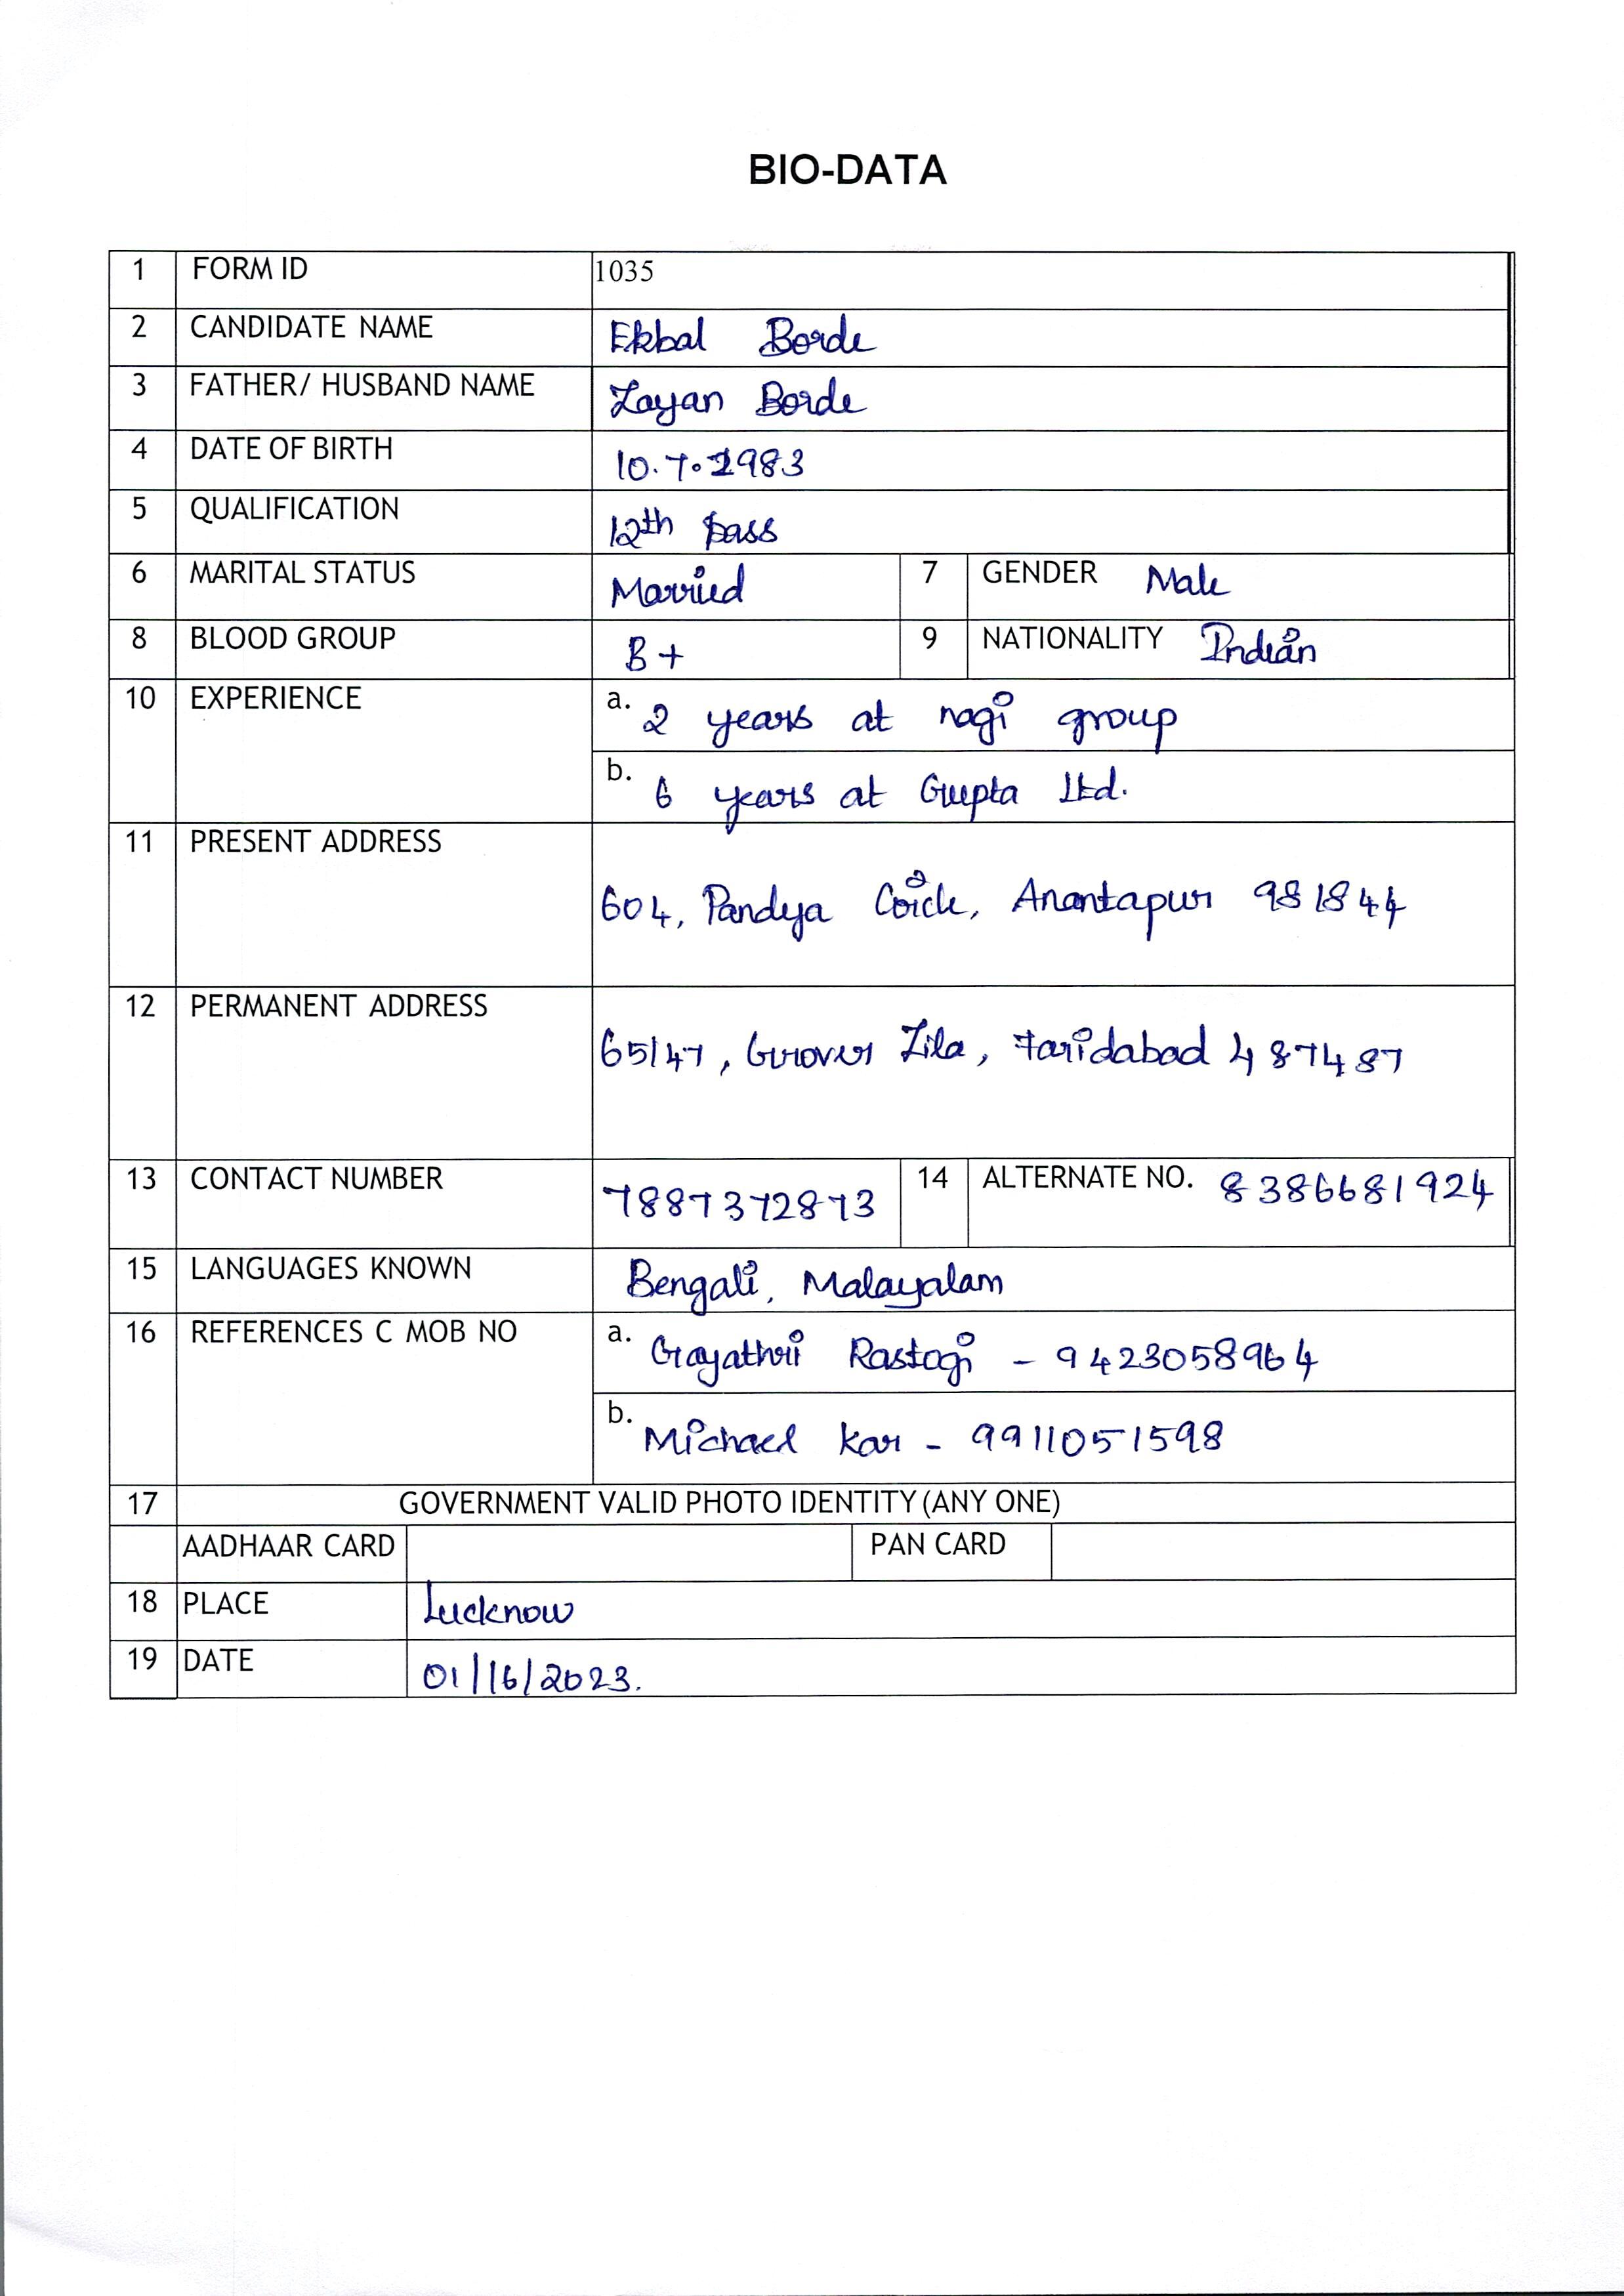 BIO-DATA
1 FORM ID 1035
2 CANDIDATE NAME Ekbal Borde
3 FATHER/ HUSBAND NAME Zayan Borde
4 DATE OF BIRTH 10.7.1983
5 QUALIFICATION 12th pass
6 MARITAL STATUS Married 7 GENDER Male
8 BLOOD GROUP B+ 9 NATIONALITY Indian
10 EXPERIENCE a. 2 years at nagi group
b. 6 years at Gupta Ltd.
11 PRESENT ADDRESS
604, Pandya Circle, Anantapur 981844
12 PERMANENT ADDRESS
65/47, Grover Zila, Faridabad 487487
13 CONTACT NUMBER 7887372873 14 ALTERNATE NO. 8386681924
15 LANGUAGES KNOWN Bengali, Malayalam
16 REFERENCES C MOB NO a. Gayathri Rastogi - 9423058964
b. Michael Kar - 9911051598
17 GOVERNMENT VALID PHOTO IDENTITY (ANY ONE)
AADHAAR CARD PAN CARD
18 PLACE Lucknow
19 DATE 01/16/2023.